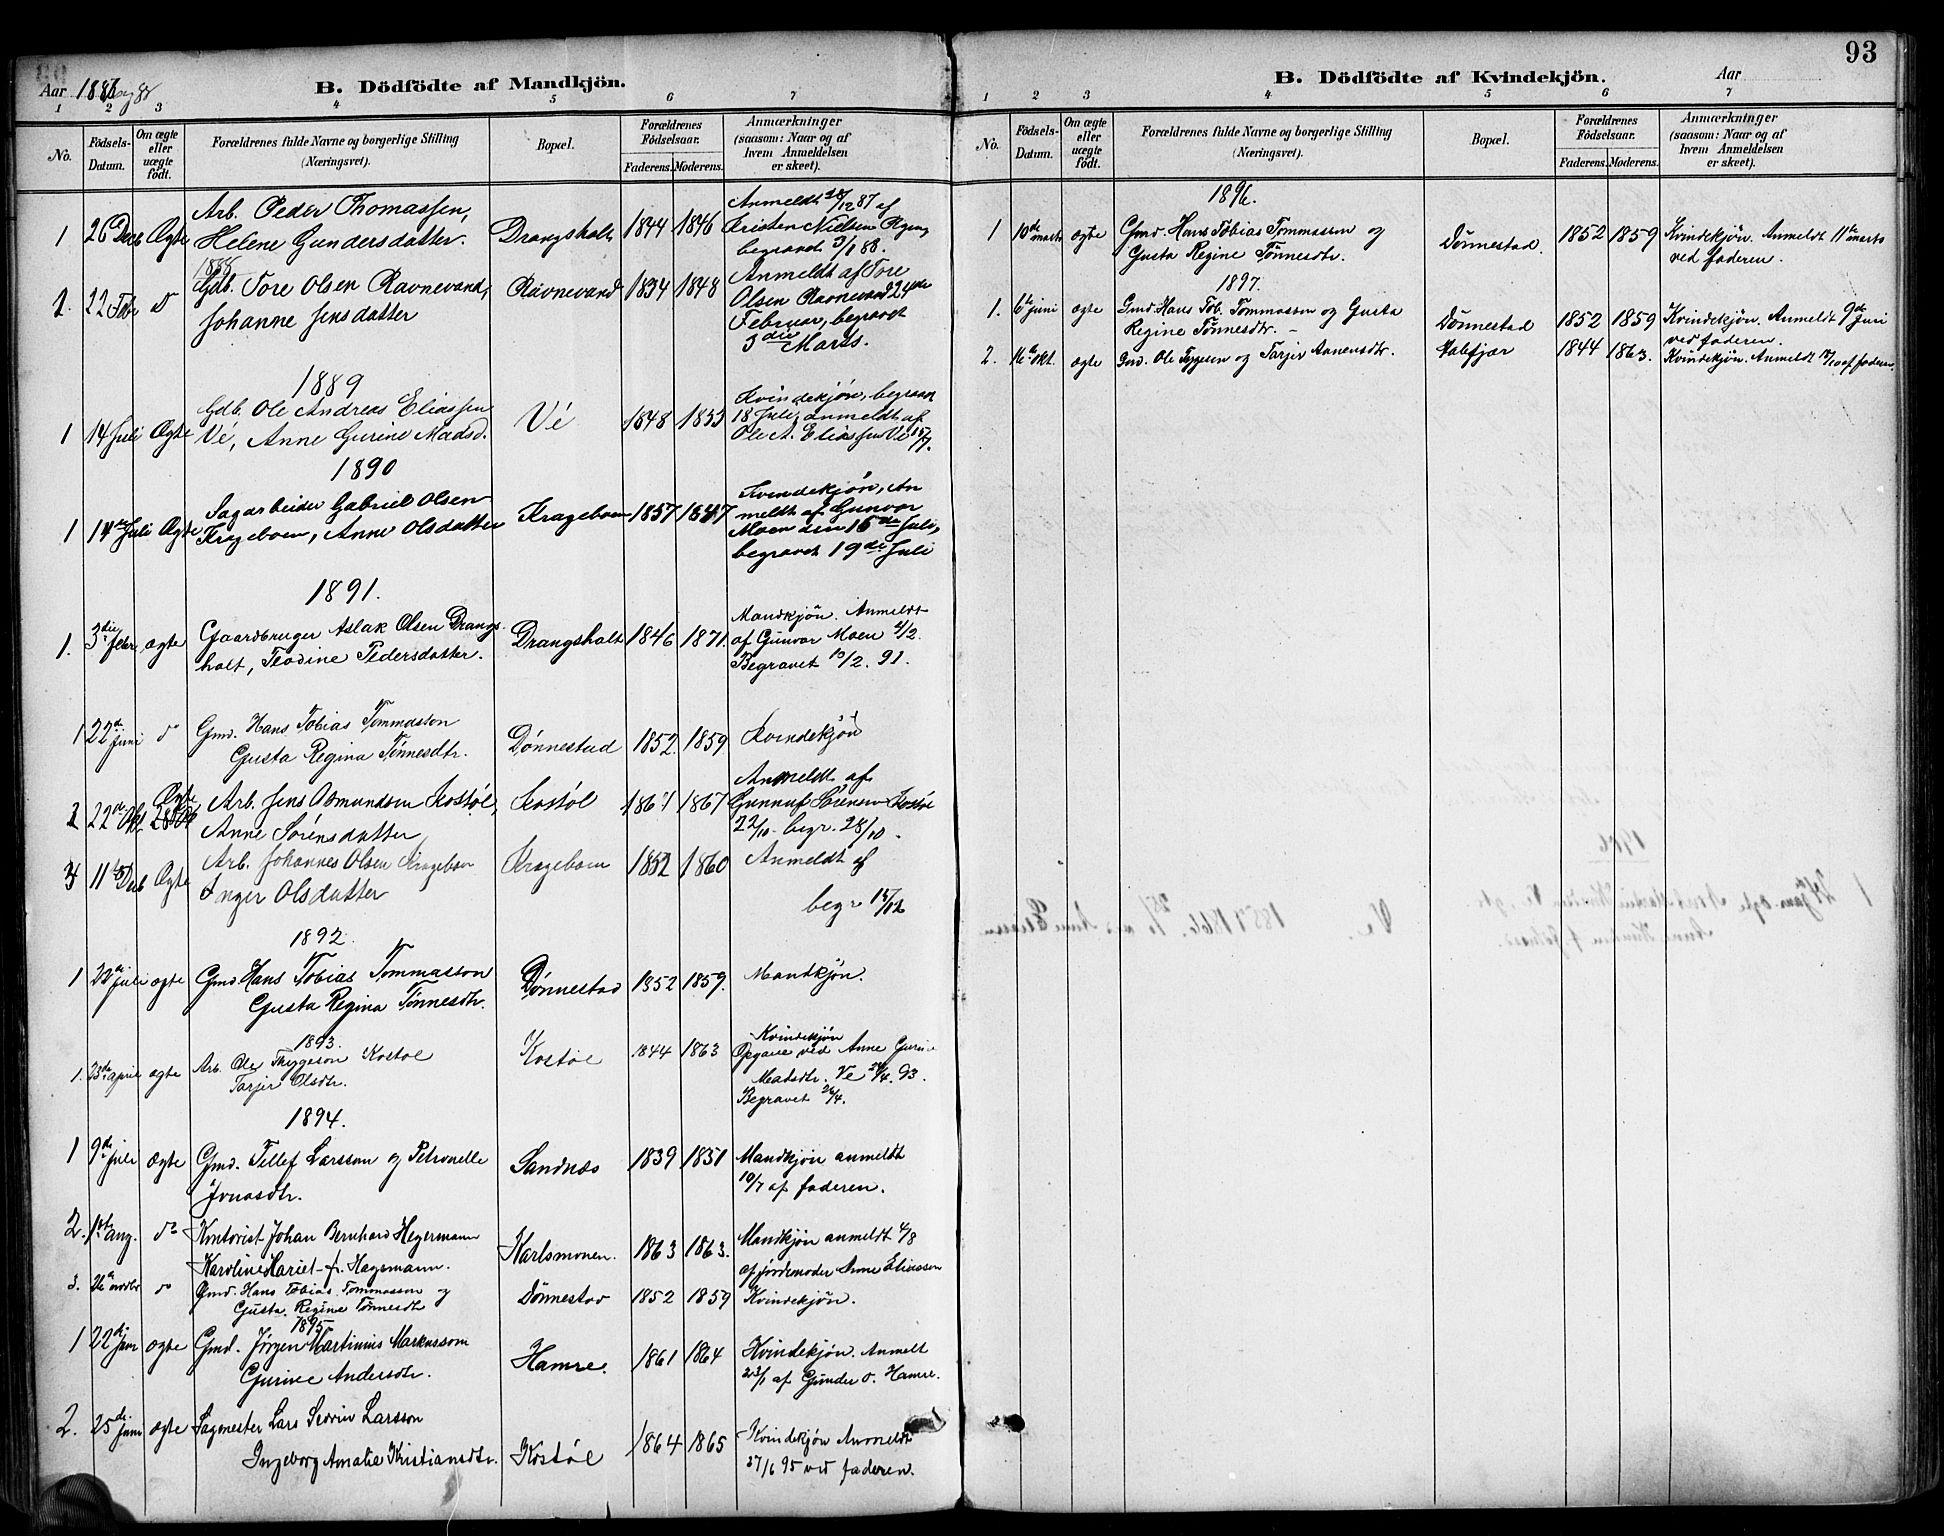 93
Aar 1887 og 88
B. Dödfödte af Mandkjön.
1 2 3 4 5 6 7
No.
Födsels-Datum.
Om ægte eller uægte födt.
Forældrenes fulde Navne og borgerlige Stilling (Næringsvei).
Bopæl.
Forældrenes Födselsaar.
Faderens. Moderens.
Anmærkninger (saasom: Naar og af hvem Anmeldelsen er skeet).
1 26 Decb Ægte Arb. Peder Thomassen, Drangsholt 1844 1846 Anmeldt 28/12 87 af
Helene Gundersdatter. Kristen Nielsen Ryen,
begravet 3/1 88.
1888
1. 22 Febr do Gdb. Tore Olsen Ravnevand, Ravnevand 1834 1848 Anmeldt af Tore
Johanne Jensdatter Olsen Ravnevand 24de
Februar, begravet
3die Marts.
1889
1 14 Juli Ægte Gdb. Ole Andreas Eliassen Vé 1848 1853 Kvindekjön, begravet
Vé, Anne Gurine Madsd. 18 Juli, anmeldt af
Ole A. Eliassen Vé 15/7.
1890
1 14de Juli Ægte Sagarbeider Gabriel Olsen Krageboen 1857 1847 Kvindekjön, An
Krageboen, Anne Olsdatter meldt af Gunvor
Moen den 15de Juli,
begravet 19de Juli
1891.
1. 3die febr ægte Gaardbruger Aslak Olsen Drangs- Drangsholt 1846 1871. Mandkjön. Anmeldt
holt, Teodine Pedersdatter. af Gunvor Moen 4/2.
Begravet 10/2. 91.
1 22de Juni do Gmd. Hans Tobias Tommasson Dönnestad 1852. 1859 Kvindekjön
Gusta Regina Tönnesdtr.
2 22de Okt Ægte Arb. Jens Osmundsen Kostöl, Kostöl 1864 1867 Anmeldt af
Anne Sörensdatter Gunnuf Sörensen Kostöl
22/10 begr. 28/10.
3 11te Decb Ægte Arb. Johannes Olsen Krageboen Krageboen 1852 1860 Anmeldt af
Inger Olsdatter begr 15/12
1892.
1 22de Juli ægte Gmd Hans Tobias Tommasson Dönnestad 1852 1859. Mandkjön.
Gusta Regina Tönnesdtr.
1893.
1. 23de april ægte Arb. Ole Thyggeson Kostöl Kostöl 1844 1863 Kvindekjön
Tarjer Olsdtr. Opgave ved Anne Gurine
Madsdtr. Ve 24/4. 93.
Begravet 26/4.
1894.
1 9de Juli ægte Gmd. Tellef Larsson og Petronelle Sandnæs 1839 1851 Mandkjön anmeldt
Jonasdtr. 10/7 af faderen.
2. 1ste aug. do Kontorist Johan Bernhard Hegermann Karlsmonen. 1863 1863. Mandkjön anmeldt 4/8
Karoline Mariet f. Hagsmann. af jordemoder Anne Eliassen
3. 26de novbr do Gmd. Hans Tobias Tommasson og Dönnestad 1852 1859 Kvindekjön.
Gusta Regine Tönnesdt
1895
1 22de Janr ægte Gmd. Jörgen Martinius Markusson Hamre. 1861 1864 Kvindekjön. Anmelt
Gurine Andersdtr. 23/1 af Gunder O. Hamre.
2. 25de Juni ægte Sagmester Lars Severin Larsson Kostöl 1864 1865 Kvindekjön Anmeldt
Ingeborg Amalie Kristiansdtr. 27/6 95 ved faderen.
B. Dödfödte af Kvindekjön. Aar
1 2 3 4 5 6 7
No.
Födsels-Datum.
Om ægte eller uægte födt.
Forældrenes fulde Navne og borgerlige Stilling (Næringsvei).
Bopæl.
Forældrenes Födselsaar.
Faderens. Moderens.
Anmærkninger (saasom: Naar og af hvem Anmeldelsen er skeet).
1896.
1 10de marts ægte Gmd. Hans Tobias Tommassen og Dönnestad. 1852 1859 Kvindekjön. Anmeldt 11te marts
Gusta Regine Tönnesdtr. ved faderen.
1897.
1. 6te juni ægte Gmd. Hans Tob. Tommasson og Gusta Dönnestad 1852 1859 Kvindekjön. Anmeldt 9de Juni
Regine Tönnesdtr. ved faderen.
2. 16de Okt. ægte Gmd. Ole Tygesen og Tarjer Aanensdtr. 1844 1863. Kvindekjön. Anmeldt af faderen.